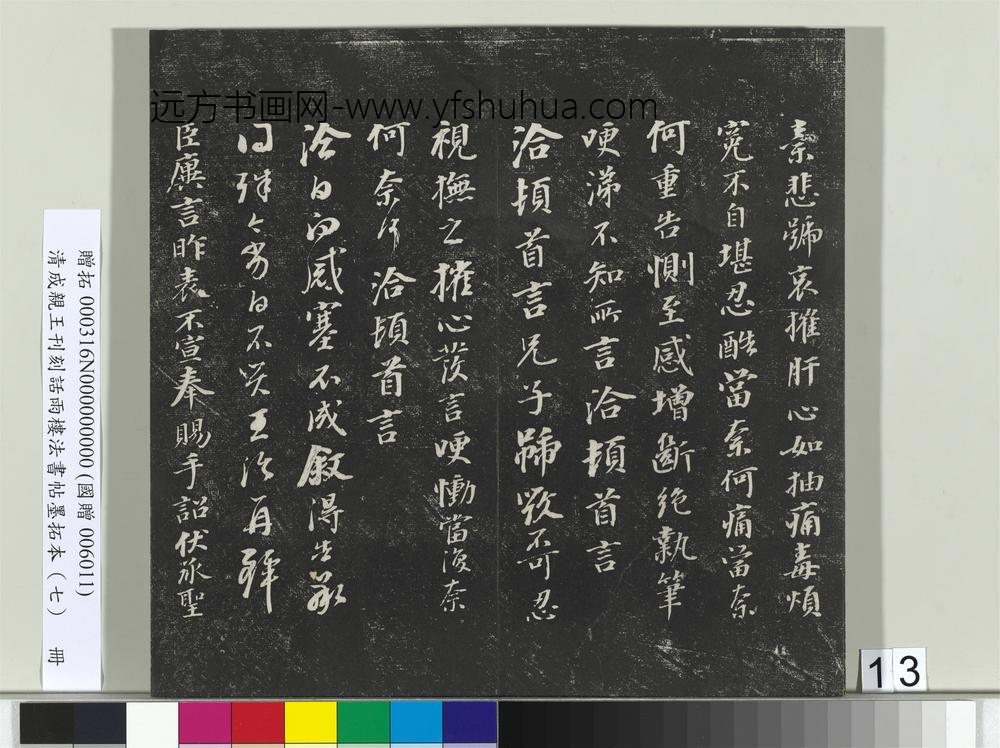 远方书画网-www.yfshuhua.com
素悲號哀摧肝心如抽痛毒煩
冤不自堪忍酷當奈何痛當奈
何重告惻至感增斷絕執筆
哽涕不知所言洽頓首言
洽頓首言兄子號毀不可忍
視撫之摧心發言哽慟當復奈
何奈何洽頓首言
洽白問感塞不成敘得告承
问 劣白不 王洽再拜
臣廙言昨表不宣奉賜手詔伏承聖
贈拓 000316N000000000 (國贈 006011)
清成親王刊刻話雨樓法書帖墨拓本（七） 冊
13